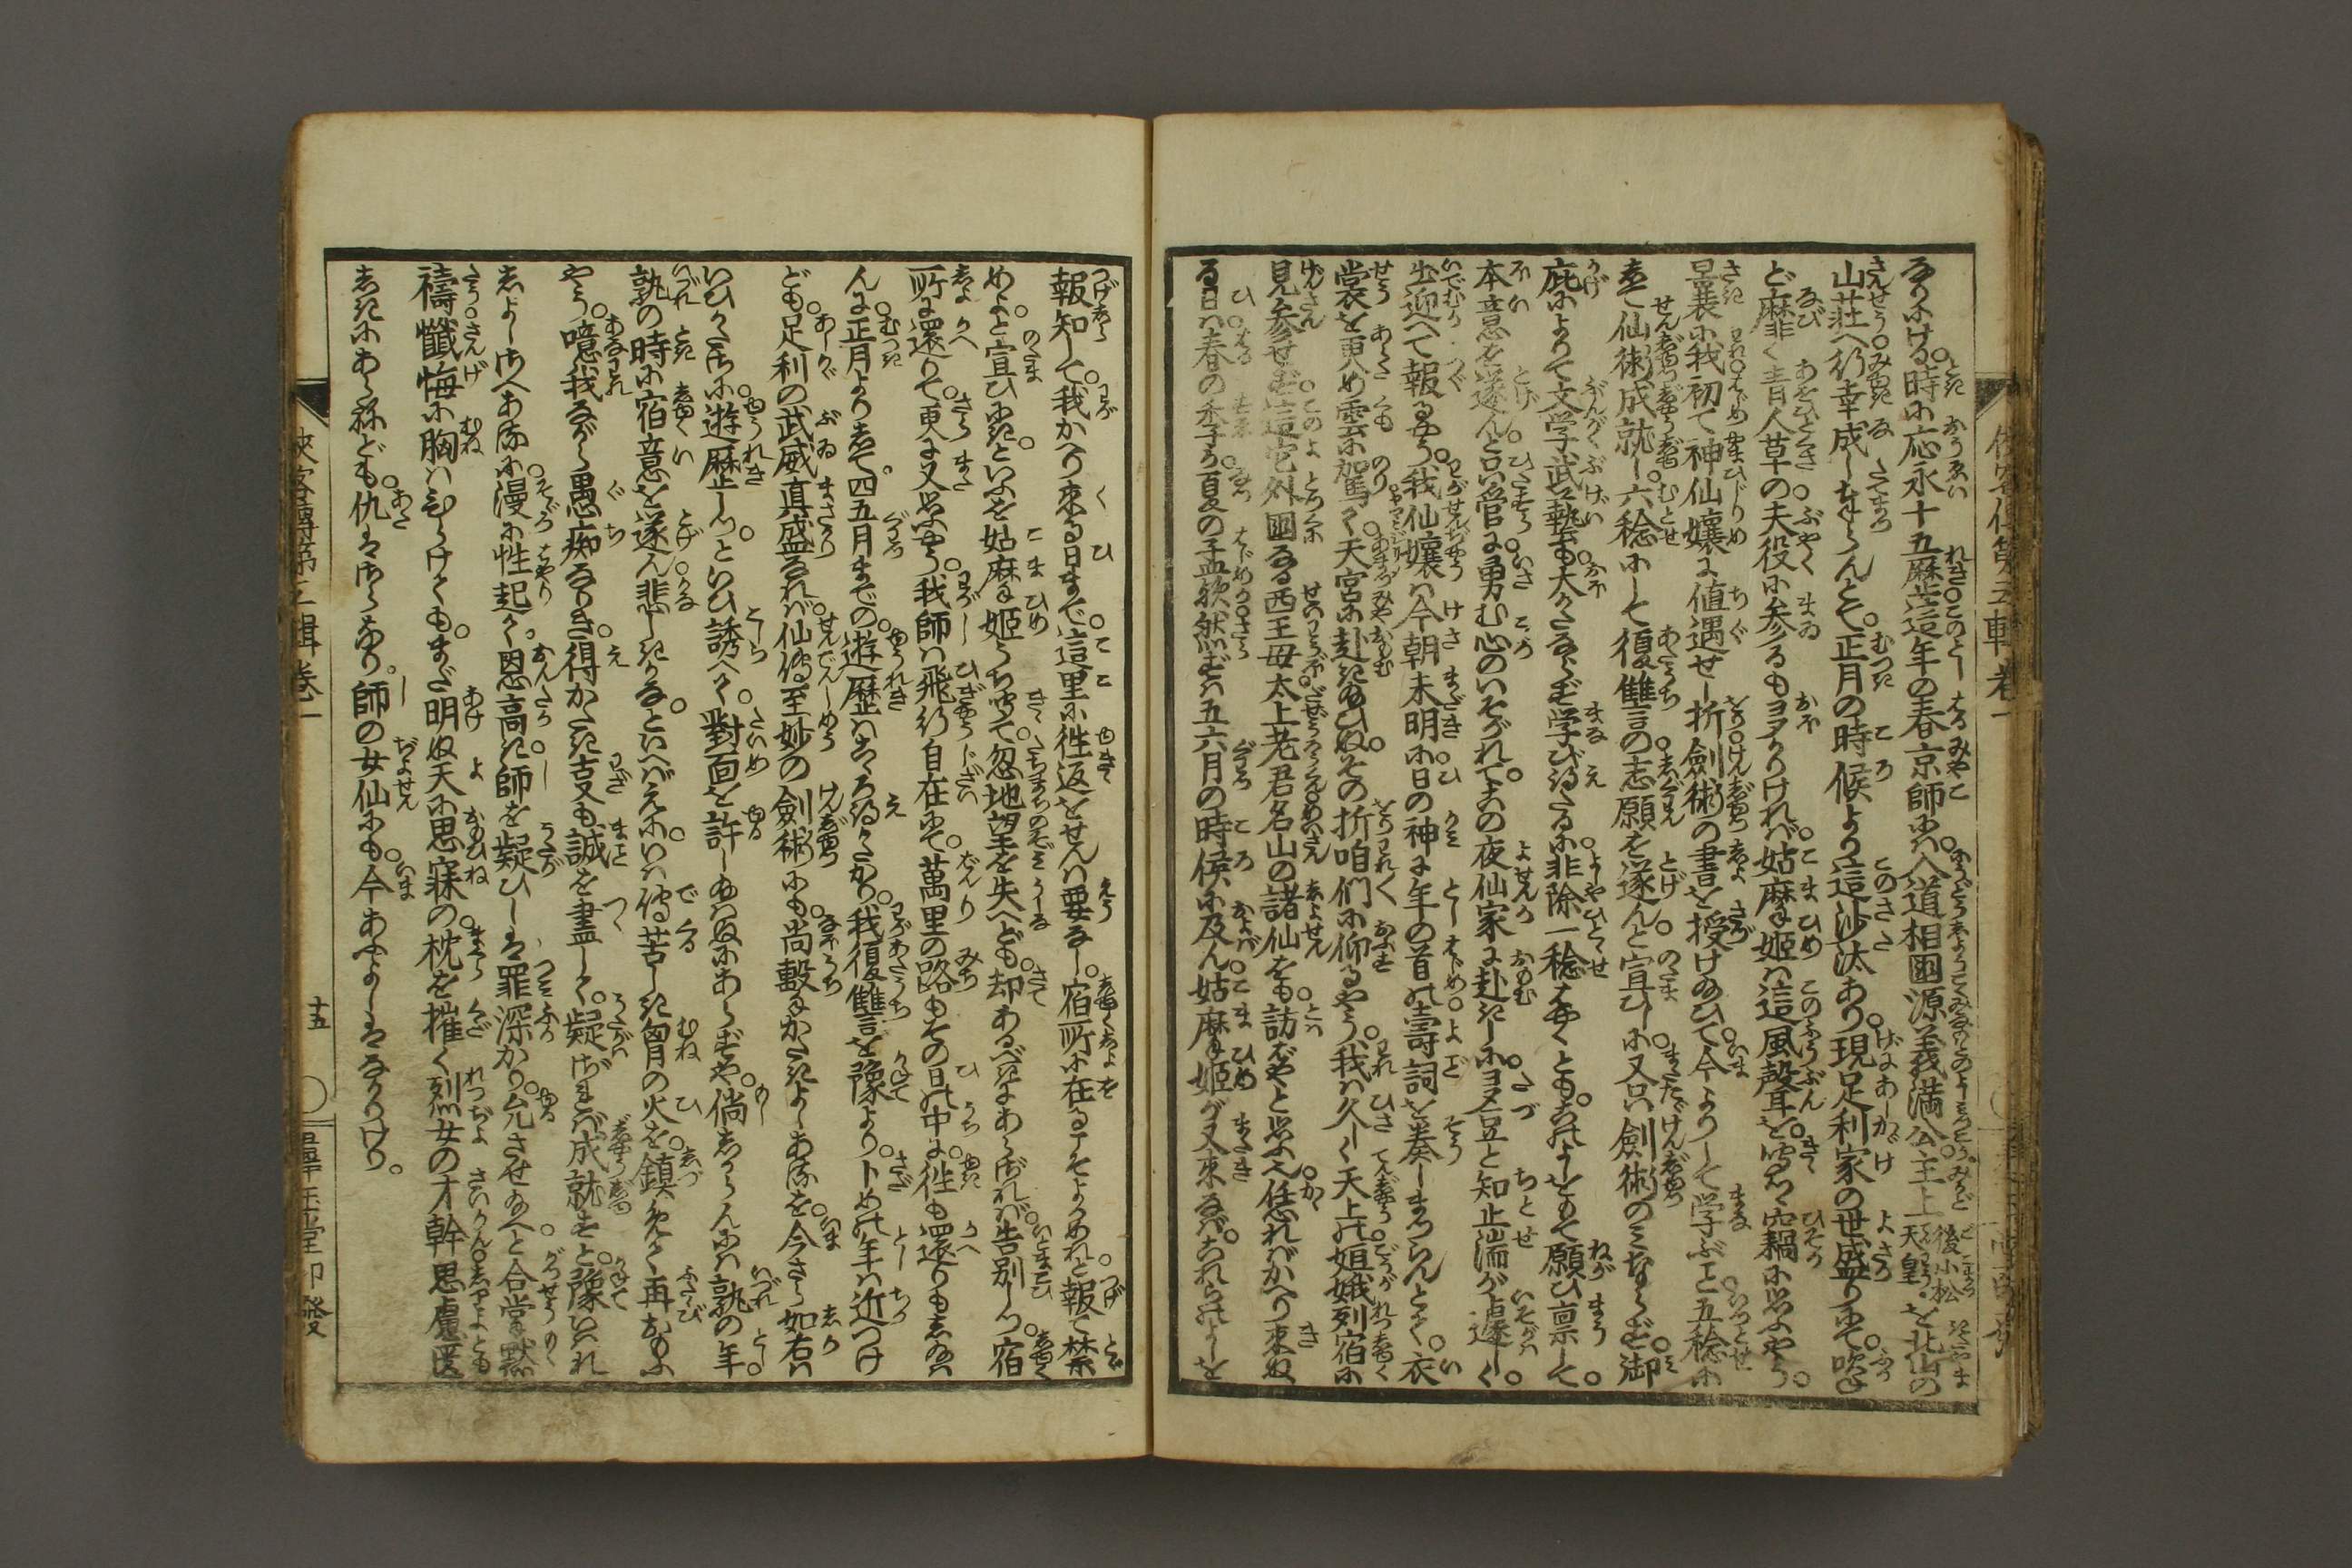 なりにける。時に応永十五歴、這年の春京師には、入道相国源義満公、主上後小松天皇。を北山の
山荘へ行幸成しまゐらせんとて。正月の時候より這沙汰あり。現足利家の世盛りにて。吹ね
ど靡く青人草の夫役に参るも多かりければ、姑麻姫は這風聲を。聞く竊に思ふやう。
曩裏に我初て神仙嬢に値遇せし折、劍術の書を授け給ひて。今よりして学ぶこと五稔に
して仙術成就し。六稔にして復讐の志願を遂んと宣ひしに、又只劍術のみならず。御
庇によりて文学武藝も。大かたならず学び得たるに。非除一稔はやくとも。これらをもて願ひ禀して。
本意を遂んと只管に。勇む心のいそがれて。その夜仙家に赴きしに。年足と知止濡が遽しく。
出迎へて報るやう。我仙嬢は今朝未明に。日の神に年の首の壽詞を奏しまつらんとて。衣
裳を更め雲に駕て。天宮に赴き給ひぬ。その折咱們に仰るやう。我は久しく天上の姮娥列宿に
見参せず。這它外國なる西王母太上老君名山の諸仙をも。訪ばやと思ふ。恁ればかへり来ぬ
る日は。春の季か。夏の孟歟。然らずは五六月の時候に及ん。姑麻姫が又来なば。これらのよしを
報知して。我かへり来る日まで。這里に往返をせんは要なし。宿所に在るこそよかめれと報て禁
めよと宣ひにき。といふを姑麻姫うち聞て。忽地望を失へども。却あるべきにあらざれば。告別しつ。宿
所に還りて。更に又思ふやう。我師は飛行自在にて。萬里の路もその日の中に。往も還りもし給は
んに。正月よりして。四五月までの。遊歴はこころ得かたかり。我復讐を豫より。卜めの年は近つけ
ども。足利の武威真盛なれば。仙傳至妙の劍術にも。尚轂ちかたきよしあるを。今さら如右は
いひかたきに。遊歴しつ。といひ誘へて。對面を許し給はぬにあらずや。倘しからんには。孰の年。
孰の時に宿意を遂ん。悲しきかな。といへばえに。いはで得る苦しき胸の火を。鎮めかね再おもふ
やう。噫我ながら愚痴なりき。得かたき支も誠を盡して。疑はざれば成就すと。豫いはれ
しよし御へあるに。漫に性起て。恩高き師を疑ひしは罪深かり。允させ給へと合掌黙
禱。懺悔に胸はひらけても。まだ明ぬ天に思寐の。枕を摧く烈女の才幹。思慮匿
しきにあらねども。仇は御ある。師の女仙にも。今あふよしはなかりけり。
侠客傳第三輯卷一
十五
群玉堂即發